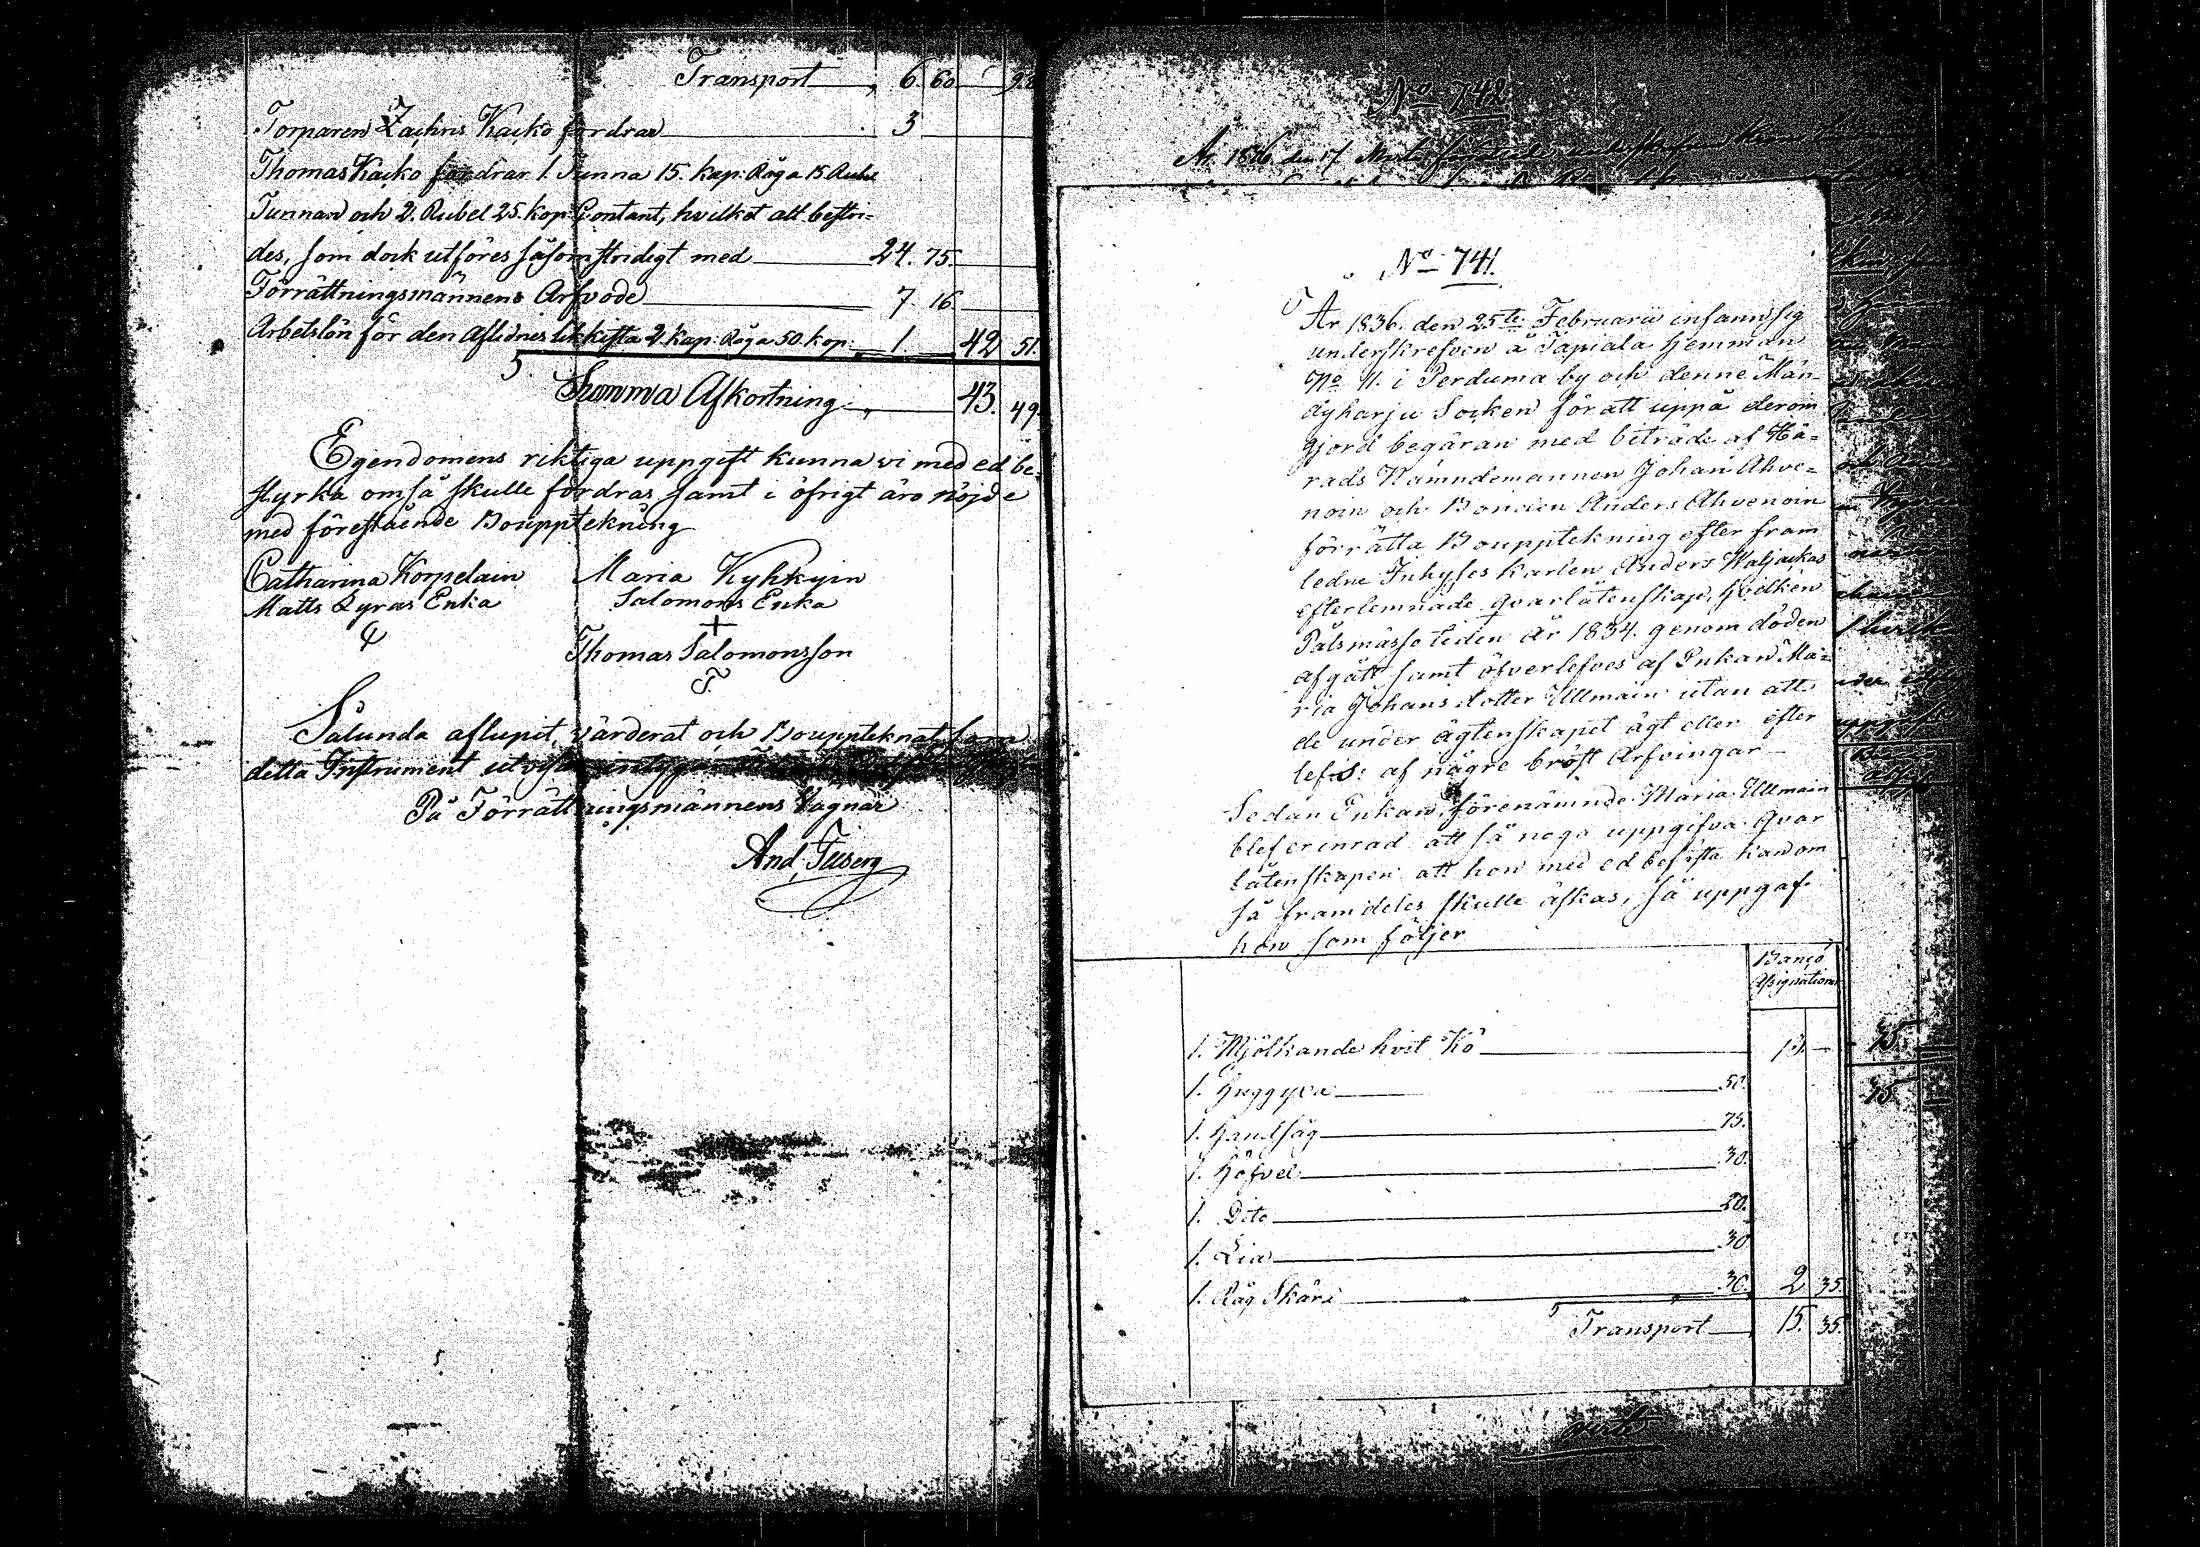 Transport 6. 60. 98
Torparen Zachris Kaiko fordrar 3
Thomas Kaiko fordrar 1. Tunna 15. kap: Råg a 15 Rube
Tunnan och 2. Rubel 25. kop: Contant, hvilket alt bestri-
des, som dock utföres såsom stridigt med 24. 75.
Förrättningsmännens Arfvode 7. 16
Arbetslön för den Aflednes likkista 2 kap: Råg a 50. kop: 1. 42 51.
Summa Afkortning 43. 49.
Egendomens riktiga uppgift kunna vi med ed be-
styrka om så skulle fordras samt i öfrigt äro nöjde
med förestående Boupptekning
Catharina Korpelain Maria Kyhkyin
Matts Lyras Enka Salomons Enka
Thomas Salomonsson
T.
Sålunda aflupit, värderat och Bouppteknat som
detta Instrument utvisar intyga
På Förrättningsmännens Vägnar
And. Tuberg
No 742
År 1836 den 17
No 741.
År 1836. den 25te Februarii infann sig
underskrefven å Tapiala Hemman
No 11. i Perduma by och denne Män-
dyharju Socken för att uppå derom
gjord begäran med biträde af Hä-
rads Nämndemannen Johan Ahve-
noin och Bonden Anders Ahvenoin
förrätta Boupptekning efter fram
ledne Inhyses karlen Anders Waljackas
efterlemnade qvarlåtenskap, hvilken
Pålsmässo tiden År 1834. genom döden
afgått samt öfverlefves af Enkan Ma-
ria Johans dotter Ullmain utan att
de under ägtenskapet ägt eller efter
lef:s: af någre bröst Arfvingar
Sedan Enkan, förenämnde Maria Ullmain
blef erinrad att så noga uppgifva Qvar
låtenskapen att hon med ed besista kan om
så framdeles skulle äskas, så uppgaf
hon som följer
Banco
Assignationer
1. Mjölkande hvit Ko 13.
1. Huggyxa 50.
1. Handsåg 75.
1. Höfvel 30.
1. Dito 20.
1. Lia 30
1. Råg Skära 30. 2 35.
Transport 15. 35.